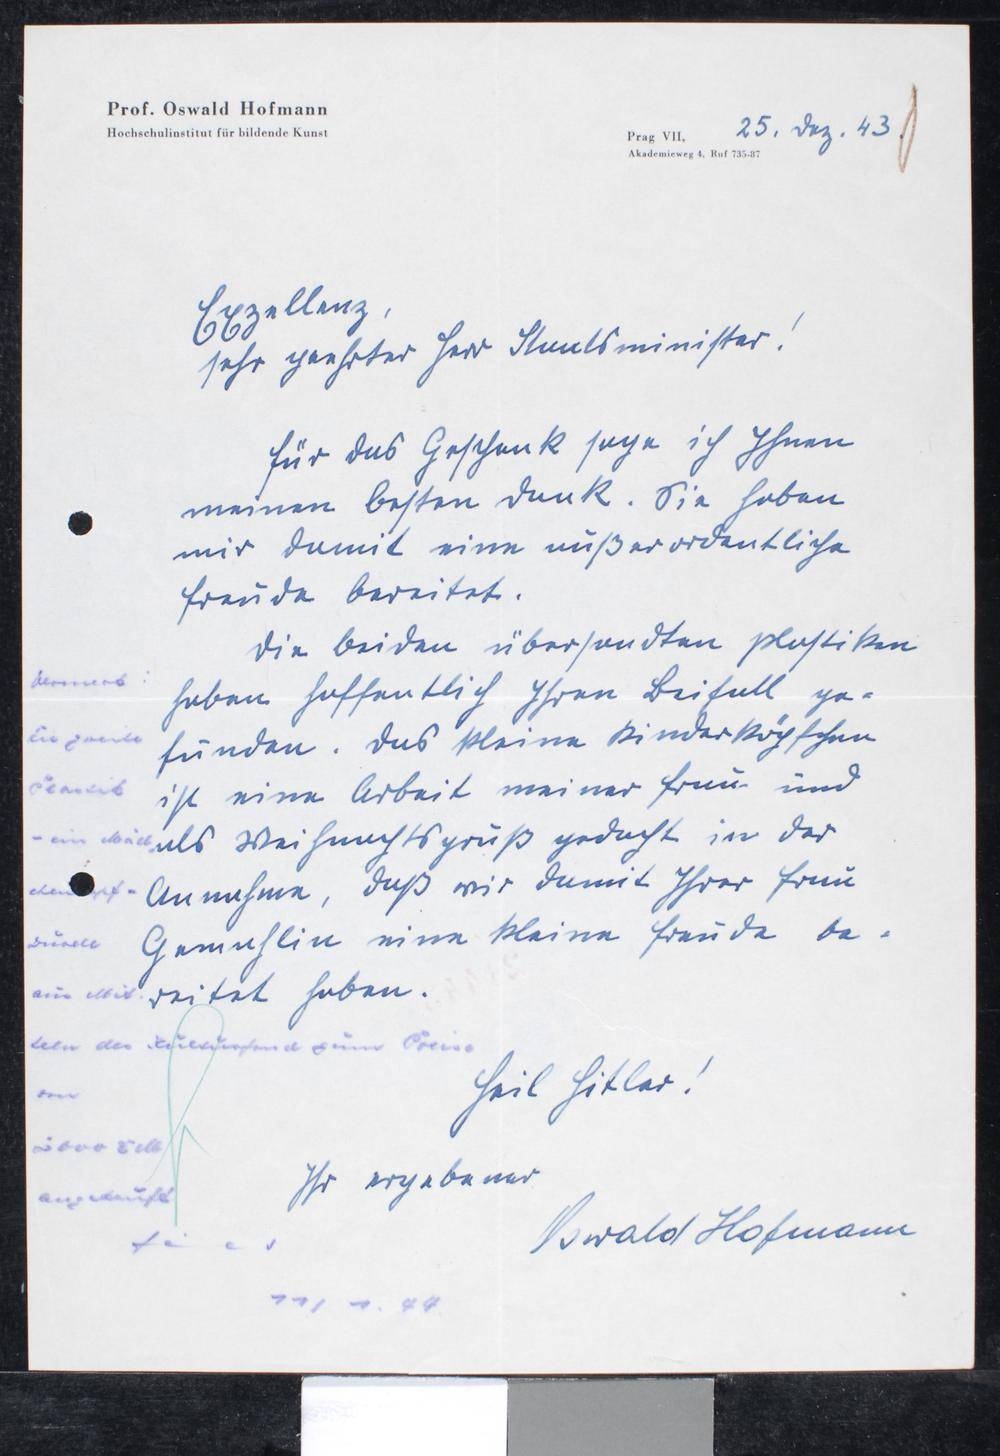 Prof. Oswald Hofmann
Hochschulinstitut für bildende Kunst
Prag VII, 25. Dez. 43
Akademieweg 4, Ruf 735-87
Exzellenz,
sehr geehrter Herr Staatsminister!
für das Geschenk sage ich Ihnen
meinen besten Dank. Sie haben
mir damit eine außerordentliche
Freude bereitet.
Die beiden übersandten Plastiken
haben hoffentlich Ihren Beifall ge-
funden. Das kleine Kinderköpfchen
ist eine Arbeit meiner Frau und
als Weihnachtsgruß gedacht in der
Annahme, daß wir damit Ihrer Frau
Gemahlin eine kleine Freude be-
reitet haben.
Heil Hitler!
Ihr ergebener
Oswald Hofmann
Vermerk:
Die zweite
Plastik
- ein Mäd
wurde
aus Mit-
teln des Kulturfond zum Preise
von
angekauft
11/ 1. 44